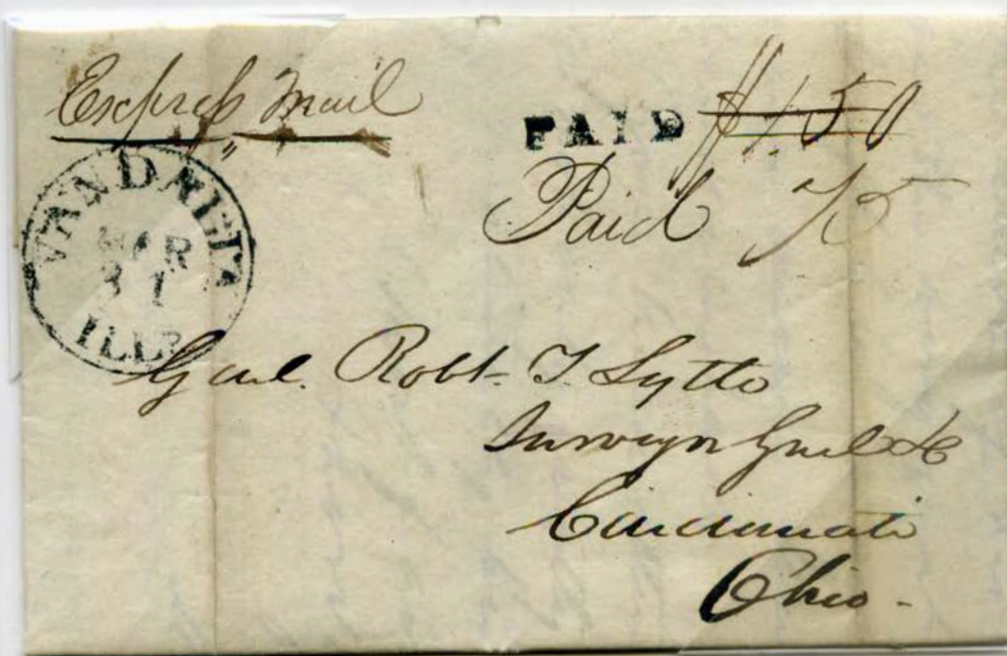 Express Mail
PAID $1.50
Paid 75
VANDALIA
MAR
31
ILLS
Genl. Robt. T. Lytle
Surveyor Genl &c
Cincinnati
Ohio.